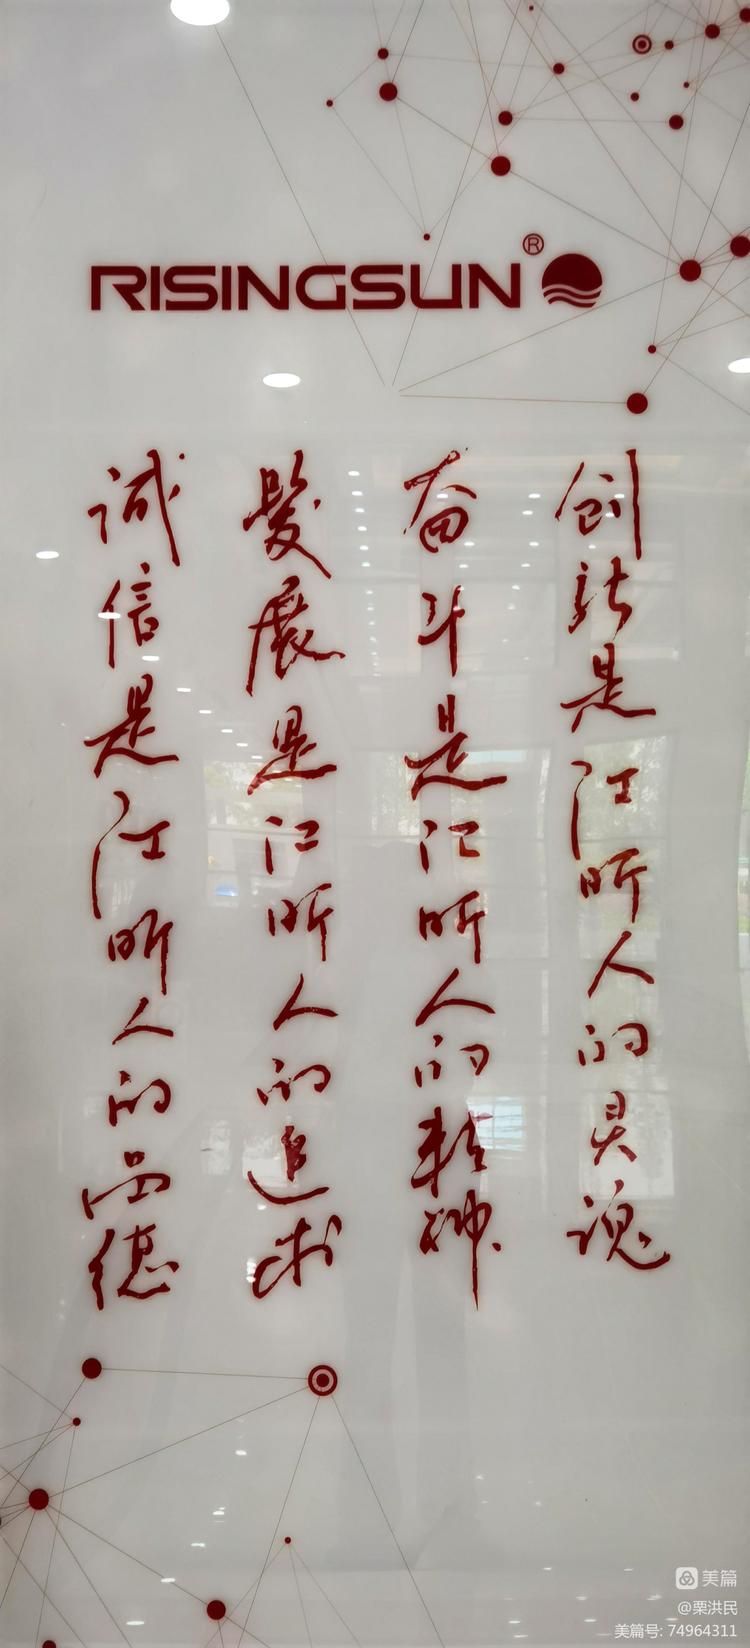 RISINGSUN®
创新是江昕人的灵魂
奋斗是江昕人的精神
發展是江昕人的追求
诚信是江昕人的品德
美篇
@栗洪民
美篇号: 74964311